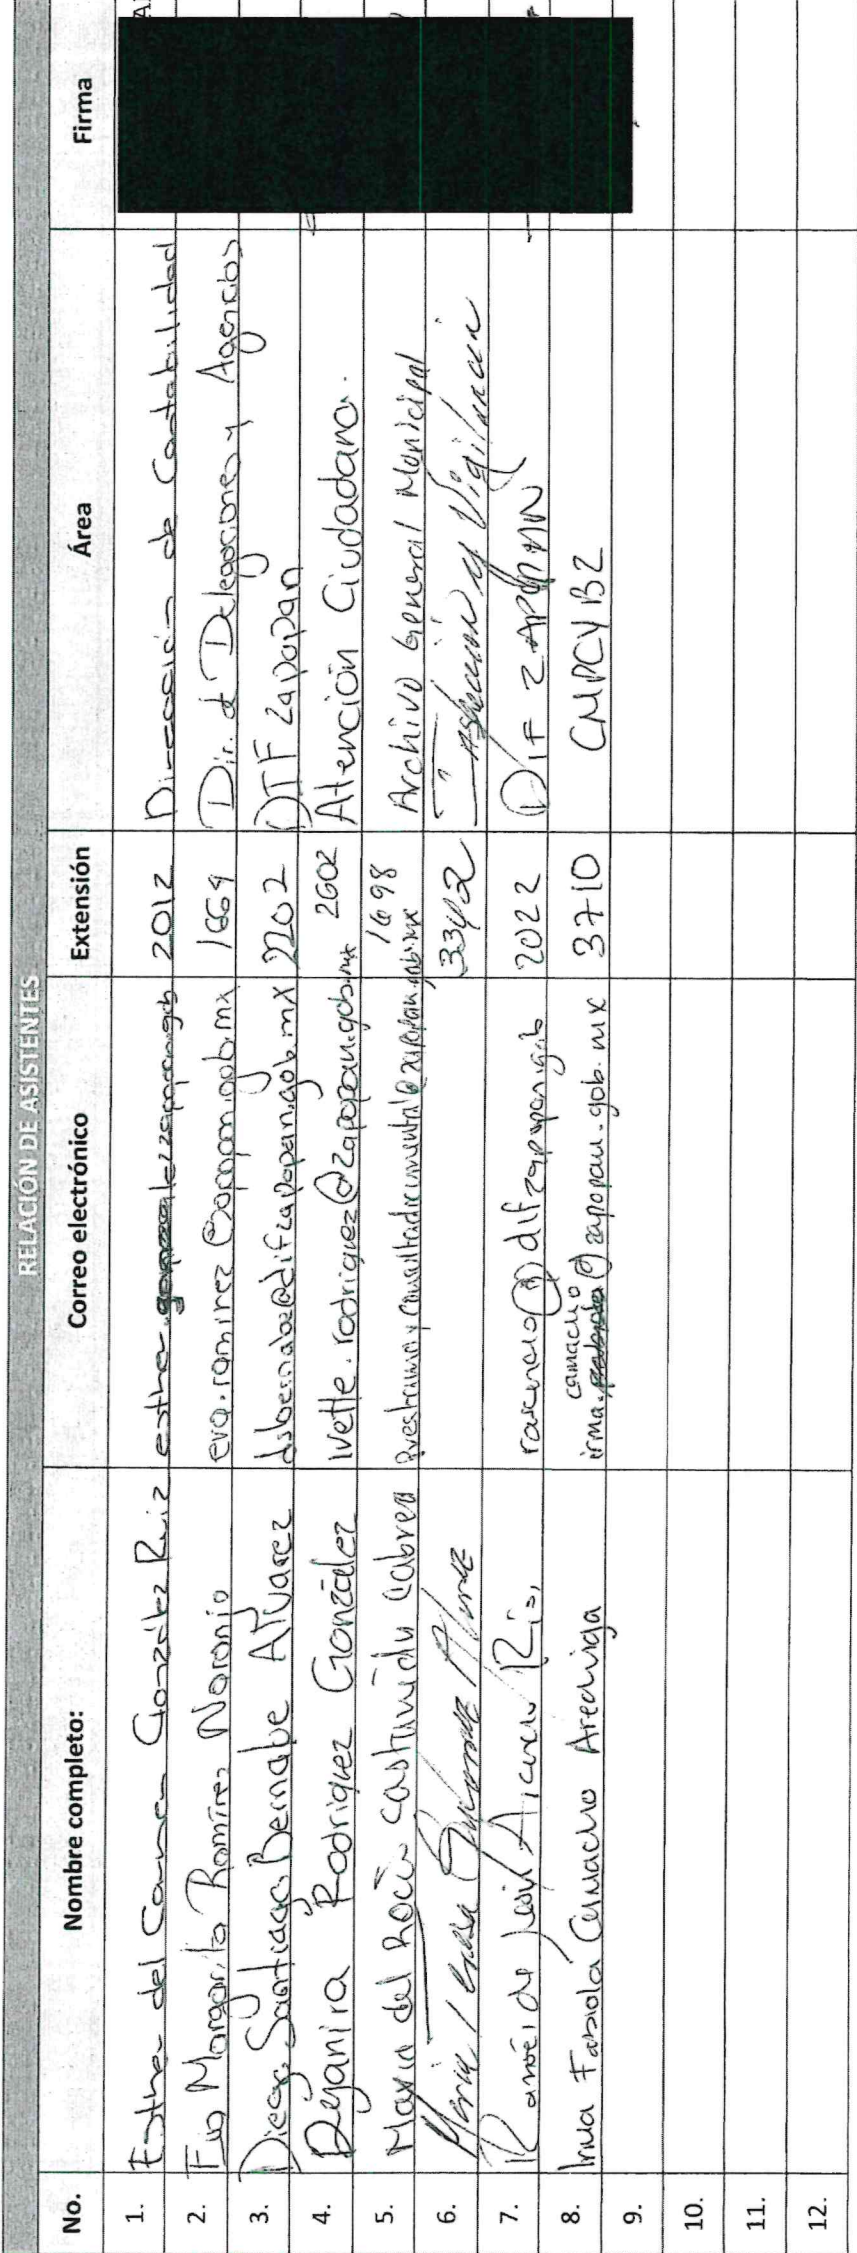 RELACIÓN DE ASISTENTES
No. Nombre completo: Correo electrónico Extensión Área Firma
1. Esther del Carmen González Ruiz esther. 2012 Dirección de Contabilidad
2. Eva Margarita Ramírez Naranjo eva.ramirez@zapopan.gob.mx 1664 Dir. d Delegaciones y Agencias
3. Diego Santiago Bernabe Alvarez dsbernabe@difzapopan.gob.mx 2202 DIF Zapopan
4. Deyanira Rodriguez González ivette.rodriguez@zapopan.gob.mx 2602 Atención Ciudadana.
5. Maria del Rocío Castañeda Cabrera 1698 Archivo General Municipal
6. Maria Teresa 3342 Inspección y Vigilancia
7. de Jesús Ascencio Rios 2022 DIF ZAPOPAN
camacho
8. Irma Fabiola Camacho Arechiga irma. @zapopan.gob.mx 3710 CMPCYBZ
9.
10.
11.
12.